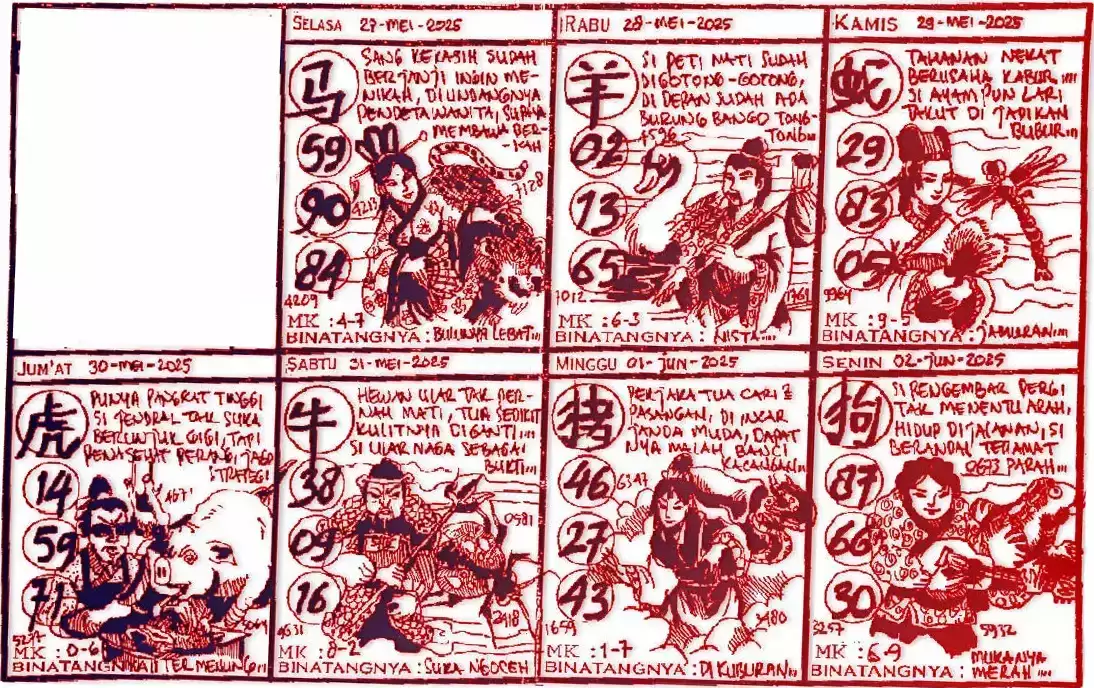 SELASA 27-MEI-2025
马
SANG KEKASIH SUDAH
BERJANJI INGIN ME-
NIKAH, DIUNDANGNYA
PENDETA WANITA, SUPAYA
MEMBAWA BER-
-KAH
59
90
84
4213
7128
4209
MK : 4-7
BINATANGNYA : BULUNYA LEBAT...
RABU 28-MEI-2025
羊
SI PETI MATI SUDAH
DIGOTONG-GOTONG,
DI DEPAN SUDAH ADA
BURUNG BANGO TONG-
TONG...
4596
02
13
65
7012
1761
MK : 6-3
BINATANGNYA : NISTA...
KAMIS 29-MEI-2025
蛇
TAHANAN NEKAT
BERUSAHA KABUR....
SI AYAM PUN LARI
TAKUT DI JADIKAN
BUBUR...
29
83
05
9964
MK : 9-5
BINATANGNYA : JAMURAN...
JUM'AT 30-MEI-2025
虎
PUNYA PANGKAT TINGGI
SI JENDRAL TAK SUKA
BERUNJUK GIGI, TAPI
PENASEHAT PERANG, JAGO
STRATEGI
14
59
71
4671
5297
5064
MK : 0-6
BINATANGNYA : TERMENUNG...
SABTU 31-MEI-2025
牛
HEWAN ULAR TAK PER-
NAH MATI, TUA SEDIKIT
KULITNYA DIGANTI....
SI ULAR NAGA SEBAGAI
BUKTI...
38
09
16
0581
2418
4631
MK : 8-2
BINATANGNYA : SUKA NGOCEH
MINGGU 01-JUN-2025
猪
PERJAKA TUA CARI 2
PASANGAN, DI INCAR
JANDA MUDA, DAPAT
NYA MALAH BANCI
KACANGAN...
46
27
43
6347
1659
3480
MK : 1-7
BINATANGNYA : DI KUBURAN...
SENIN 02-JUN-2025
狗
SI PENGEMBAR PERGI
TAK MENENTU ARAH,
HIDUP DI JALANAN, SI
BERANDAL TERAMAT
0673 PARAH...
87
66
30
3257
5932
MK : 6-9
BINATANGNYA : MUKANYA
MERAH....